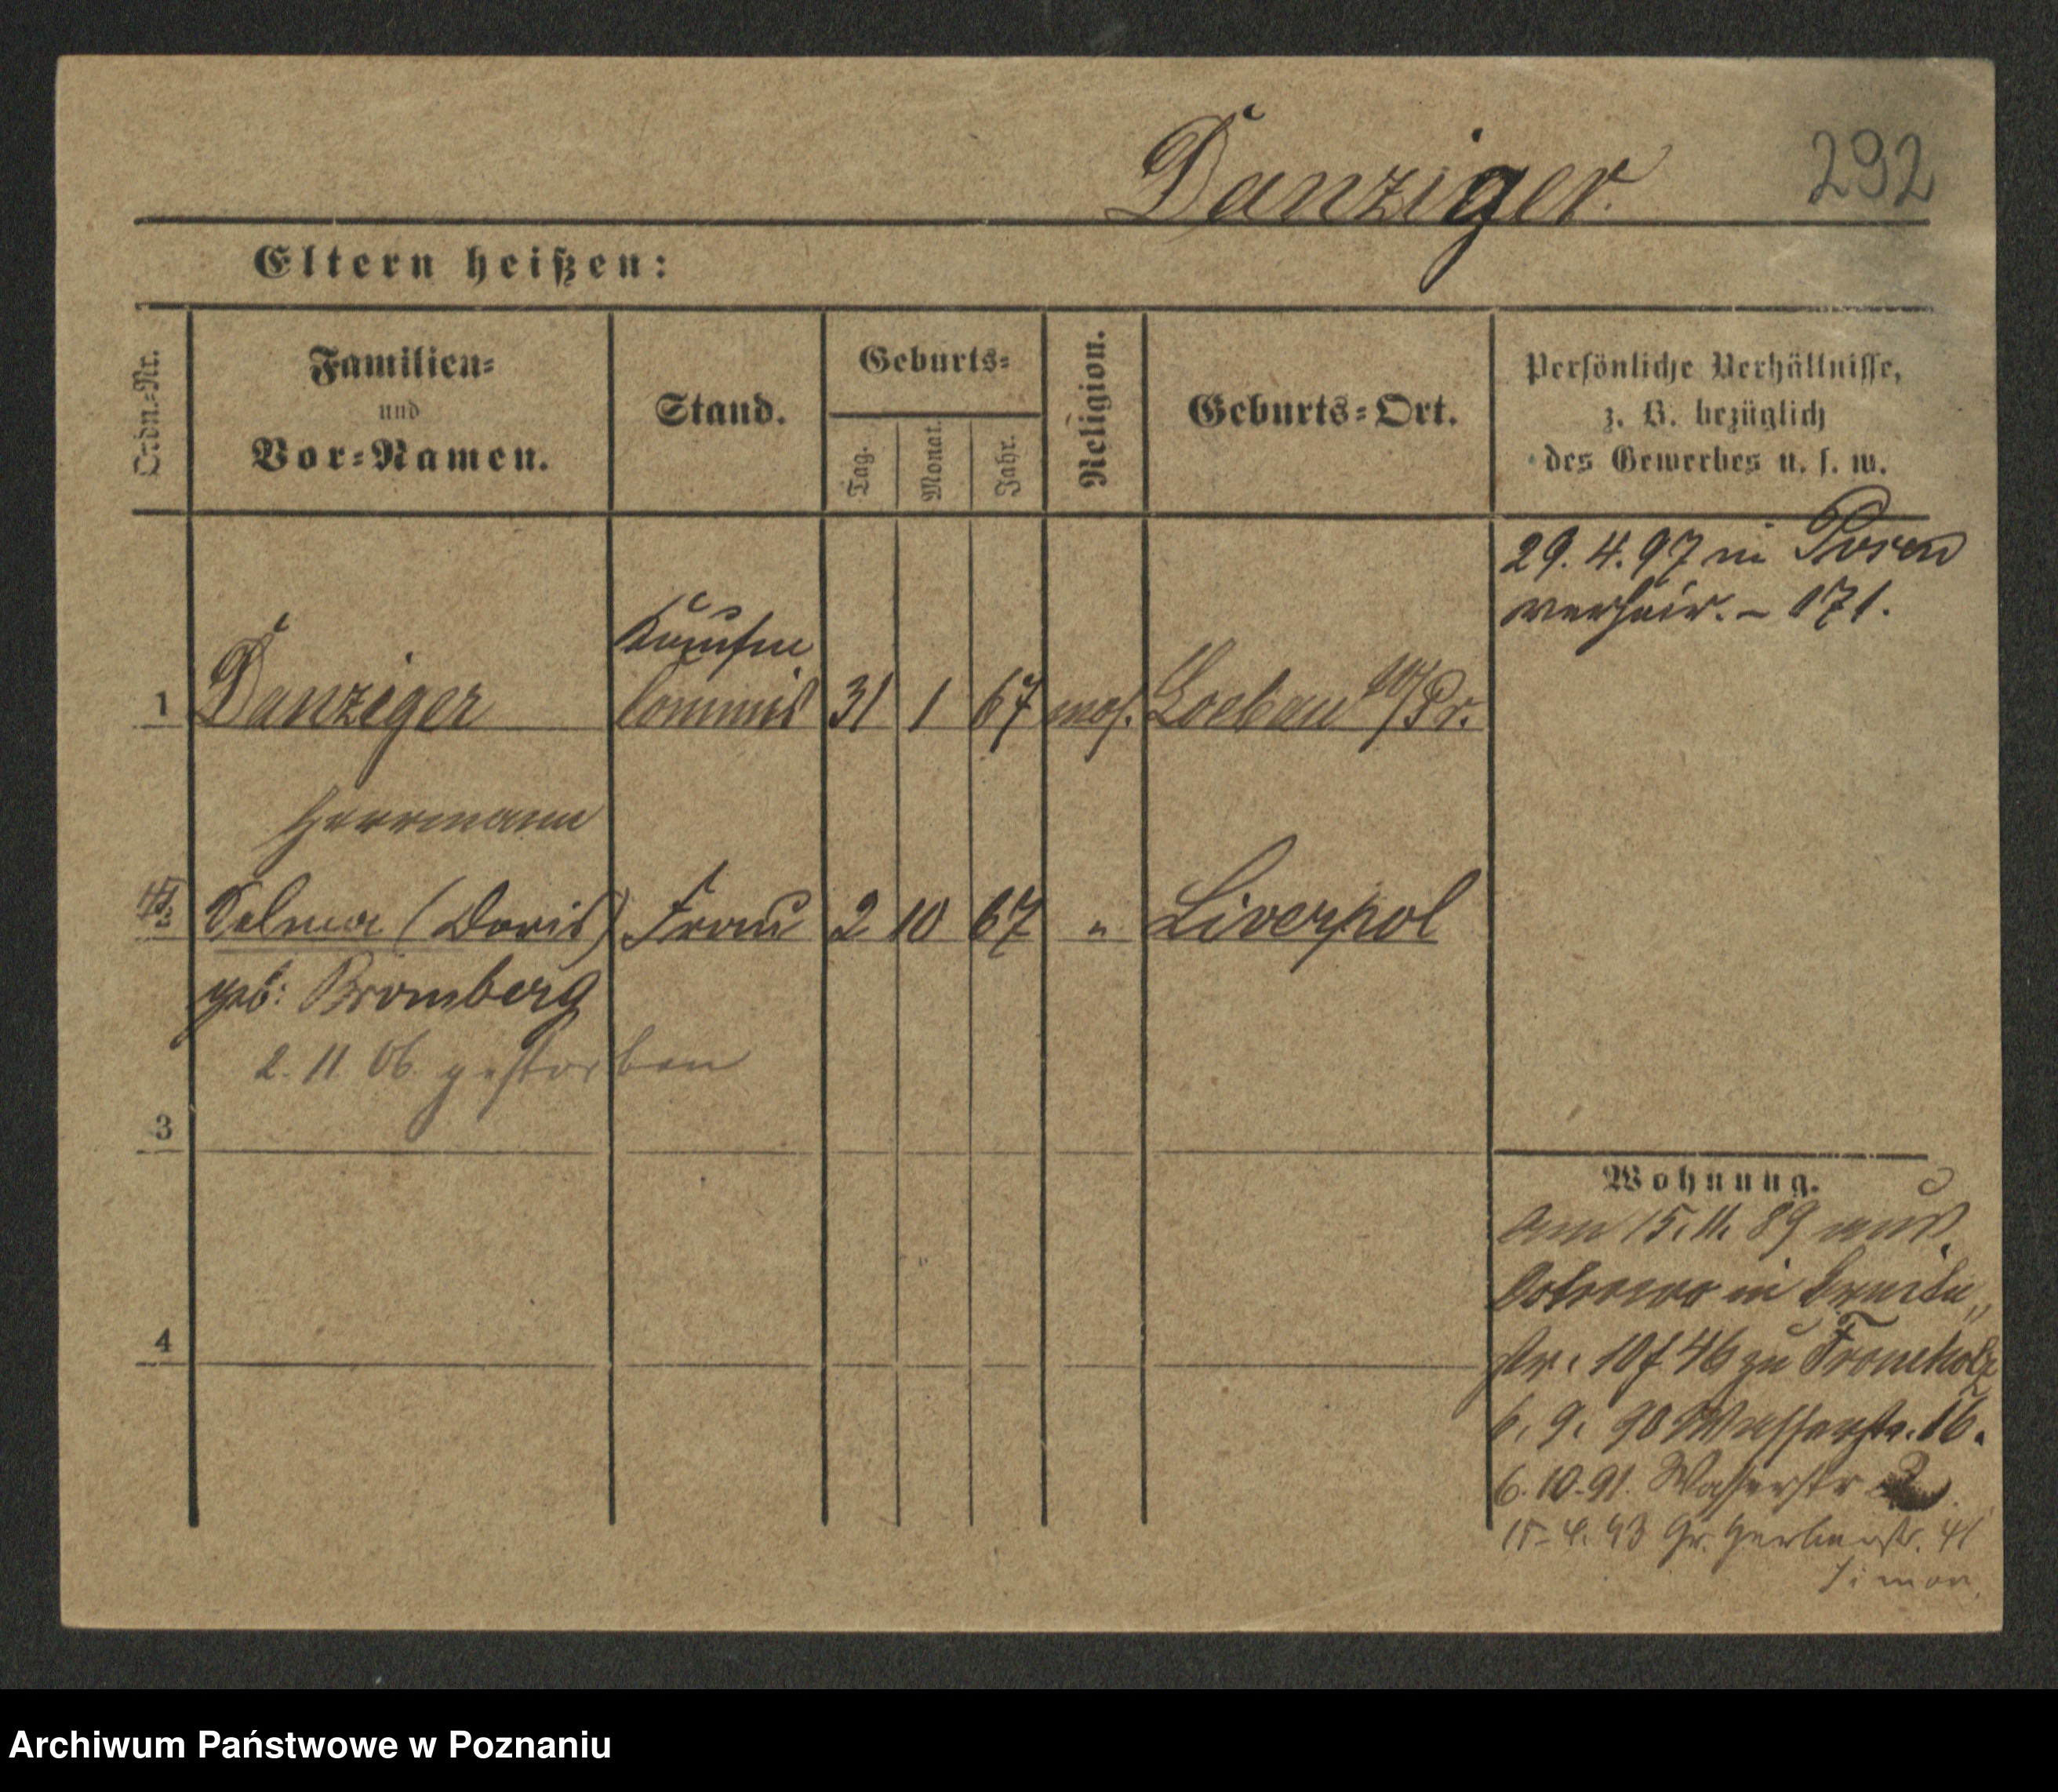 Danziger.
292
Eltern heißen:
Ordn.-Nr.
Familien-
und
Vor-Namen.
Stand.
Geburts-
Tag.
Monat.
Jahr.
Religion.
Geburts-Ort.
Persönliche Verhältnisse,
z. B. bezüglich
des Gewerbes u. s. w.
29. 4. 97 in Posen
verheir. - 171.
Kaufm
1 Danziger Commis 31 1 67 mos. Loebau W/Pr.
Herrmann
Selma (Doris) Frau 2 10 67 " Liverpol
geb: Bromberg
2. 11. 06. gestorben
3
Wohnung.
Am 15. 11. 89 aus
Ostrowo in Breite„
4
str. 10 f. 46 zu
6. 9. 90 Wasserstr. 16.
6. 10. 91. Wasserstr 2
15. 4. 93 Gr. Gerberstr. 41
Simon.